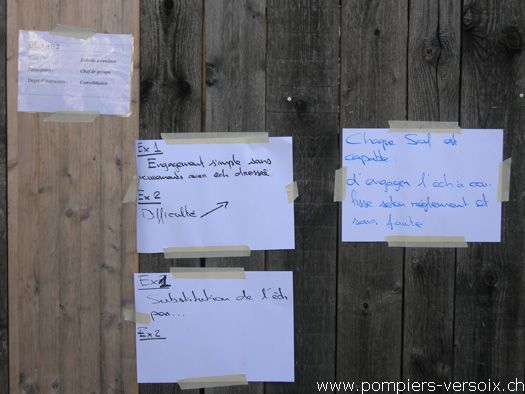 Echelle à coulisse
Chef de groupe
Consolidation
Ex 1
Engagement simple sans
mouvements avec éch dressée
Ex 2
Difficulté
Ex 1
Substitution de l'éch
par...
Ex 2
Chaque Sap est
capable
d'engager l'éch à cou
lisse selon règlement et
sans faute
www.pompiers-versoix.ch